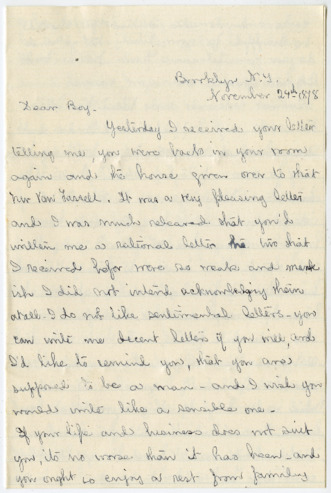 Brooklyn N.Y.
November 24th 1878
Dear Boy.
Yesterday I received your letter
telling me, you were back in your room
again and the house given over to that
Mr Van Tassell. It was a very pleasing letter
and I was much released that you'd
written me a rational letter the two that
I received befor were so weak and
ish I did not intend acknowledging them
atall. I do not like sentimental letters - you
can write me decent letters if you will, and
I'd like to remind you, that you are
supposed to be a man - and I wish you
would write like a sensible one -
If your life and business does not suit
you, its no worse than it has been - and
you ought to enjoy a rest from families